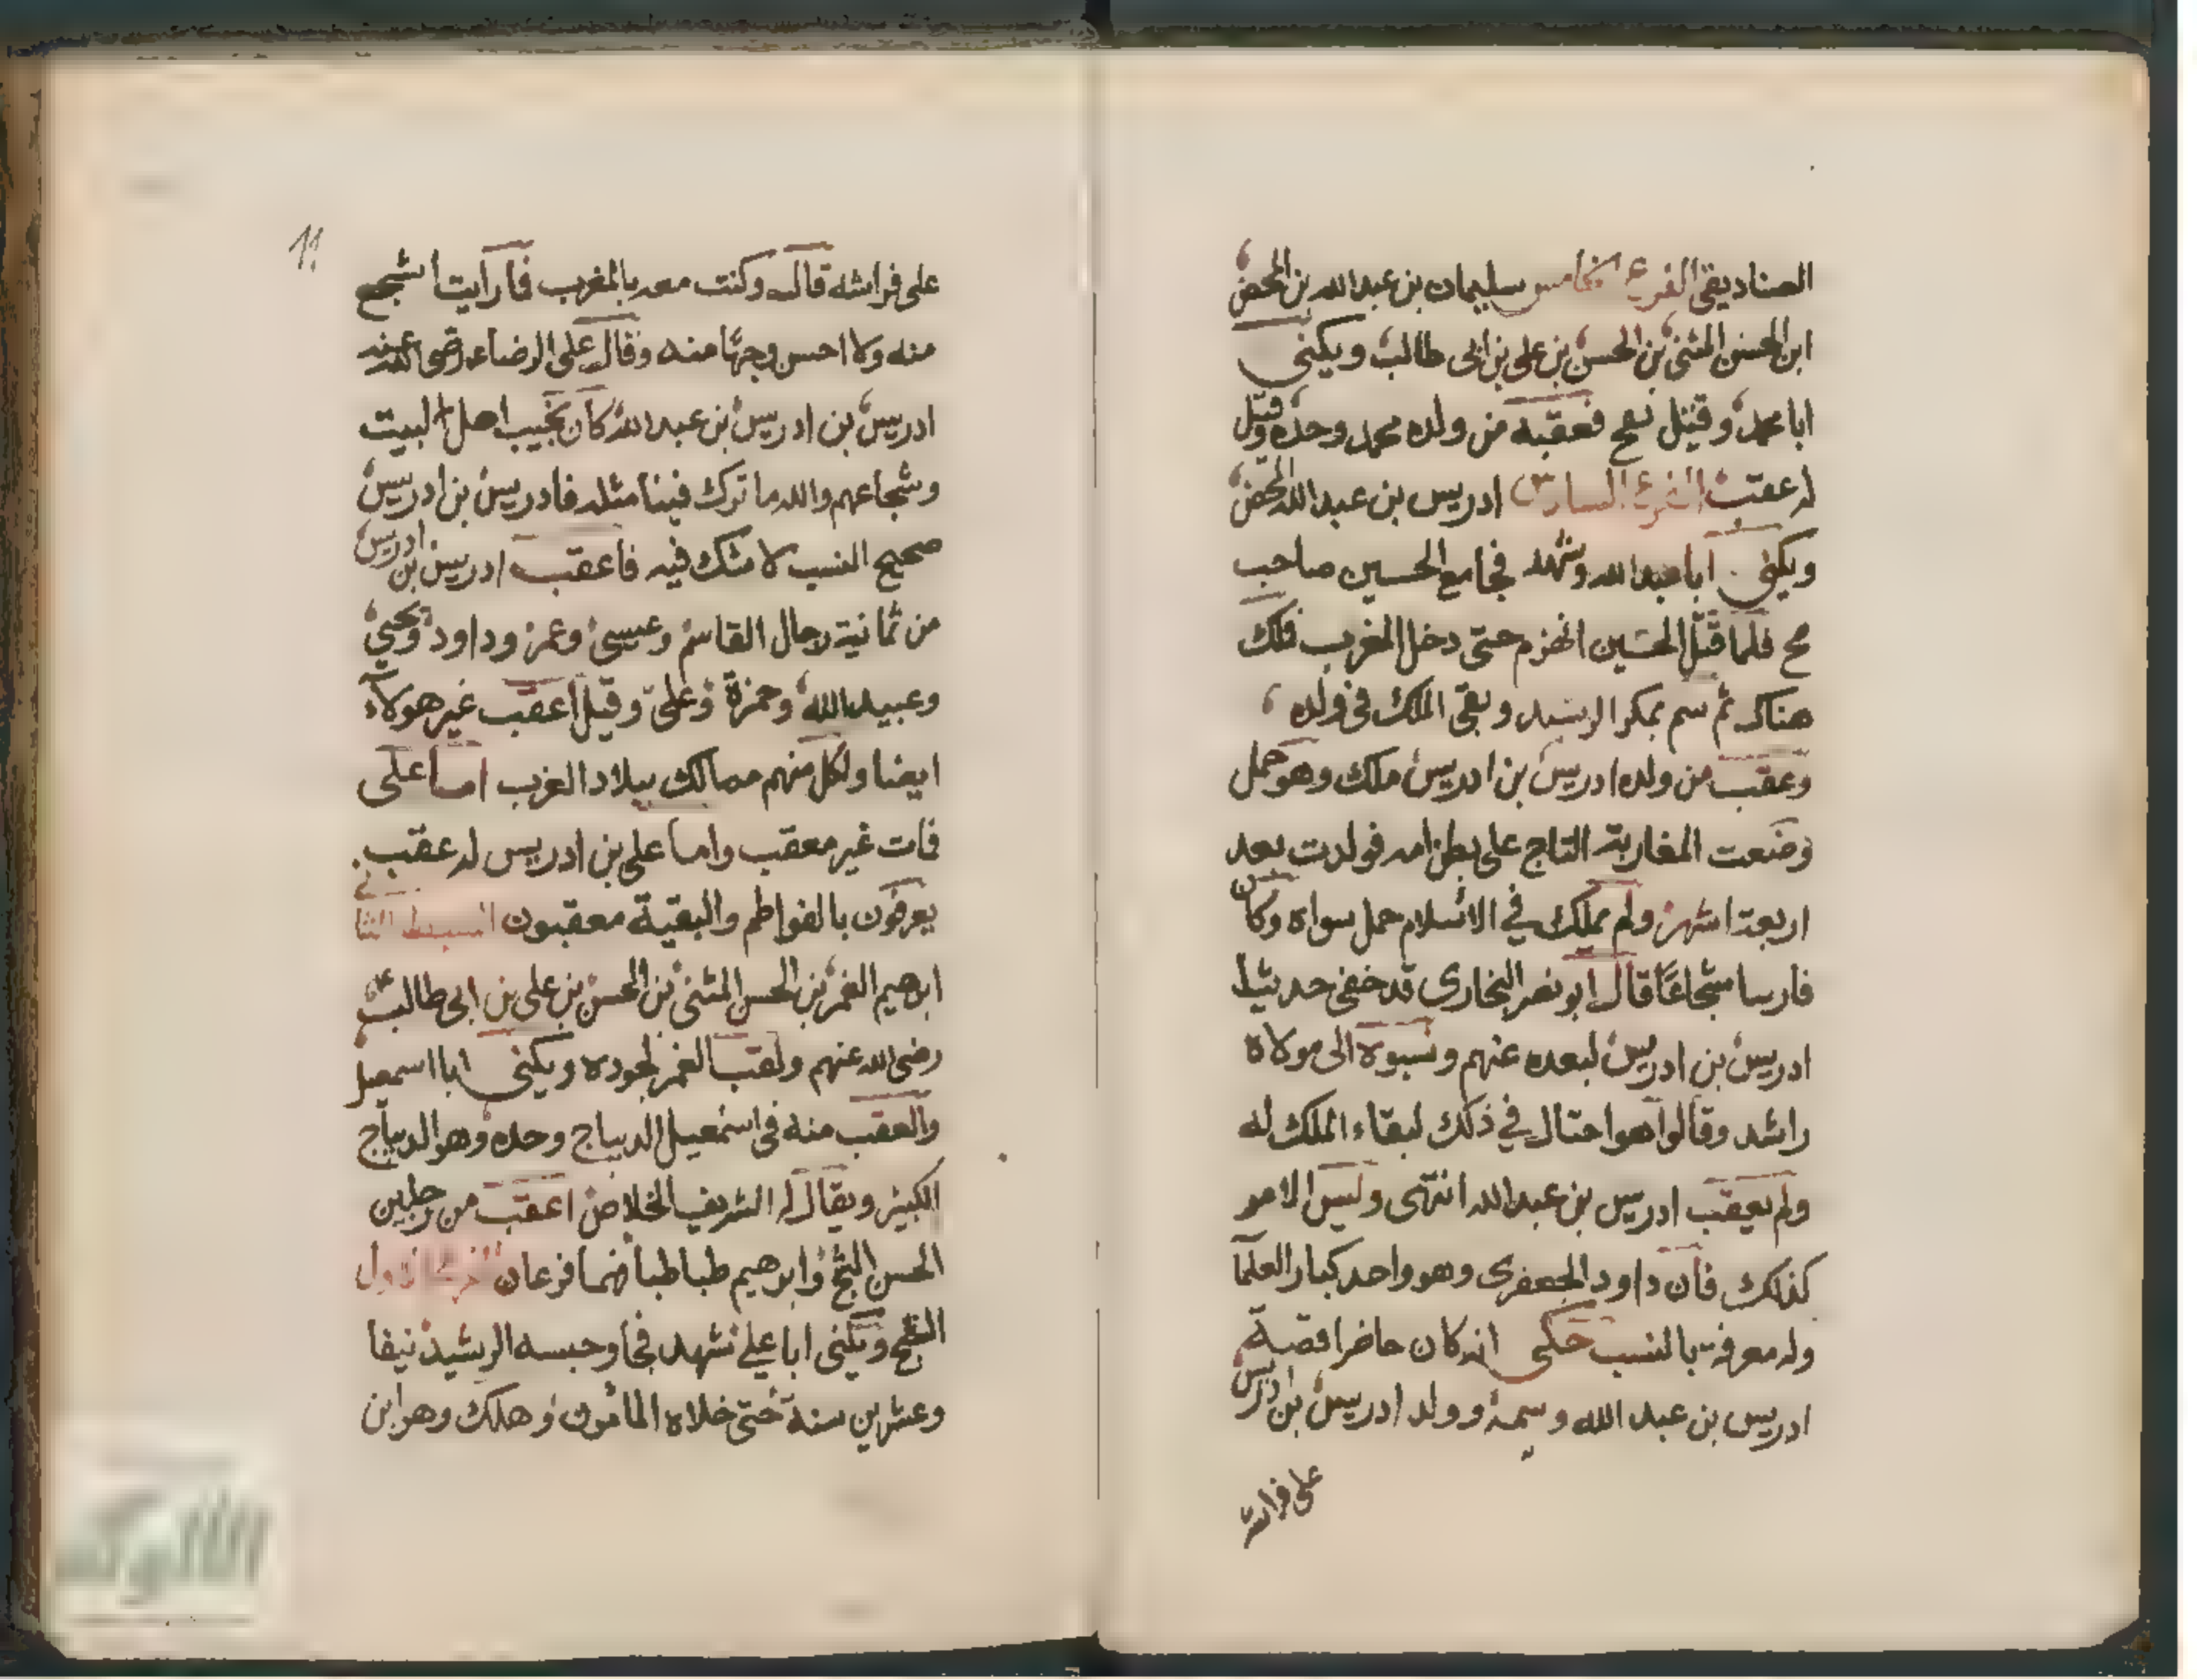 الصناديقى الفرع الخامس سليمان بن عبد الله بن المحض
ابن الحسن المثنى بن الحسن بن على بن ابى طالب ويكنى
ابا محمد وقتل بفخ فعقبه من ولده محمد وحده وقيل
له عقب الفرع السادس ادريس بن عبد الله المحض
ويكنى ابا عبد الله وشهد فخا مع الحسين صاحب
فخ فلما قتل الحسين انهزم حتى دخل المغرب فملك
هناك ثم سم بمكر الرشيد وبقى الملك فى ولده
وعقب من ولده ادريس بن ادريس ملك وهو حمل
وضعت المغاربة التاج على بطن امه فولدت بعد
اربعة اشهر ولم يملك في الاسلام حمل سواه وكان
فارسا شجاعًا قال ابو نصر البخارى قد خفى حديث
ادريس بن ادريس لبعده عنهم ونسبوه الى مولاه
راشد وقالوا هو احتال في ذلك لبقاء الملك له
ولم يعقب ادريس بن عبد الله انتهى وليس الامر
كذلك فان داود الجعفرى وهو واحد كبار العلما
وله معرفة بالنسب حكى انه كان حاضرا قصة
ادريس بن عبد الله وسمه وولد ادريس بن ادريس
على فراشه
11
على فراشه قال وكنت معه بالمغرب فما رايت اشجع
منه ولا احسن وجهًا منه وقال على الرضاء رضى الله عنه
ادريس بن ادريس بن عبد الله كان نجيب اهل البيت
وشجاعهم والله ما ترك فينا مثله فادريس بن ادريس
صحيح النسب لا شك فيه فاعقب ادريس بن ادريس
من ثمانية رجال القاسم وعيسى وعمر وداود ويحيى
وعبيد الله وحمزة وعلى وقيل اعقب غير هولآء
ايضا ولكل منهم ممالك ببلاد الغرب اما على
فمات غير معقب واما على بن ادريس له عقب
يعرفون بالفواطم والبقية معقبون السبط الثانى
ابرهيم الغمر بن الحسن المثنى بن الحسن بن على بن ابى طالب
رضى الله عنهم ولقب الغمر لجوده ويكنى ابا اسمعيل
والعقب منه فى اسمعيل الديباج وحده وهو الديباج
الكبير ويقال له الشريف الخلاص اعقب من رجلين
الحسن التج وابرهيم طباطبا فهما فرعان الفرع الاول
التج ويكنى ابا على شهد فخا وحبسه الرشيد نيفا
وعشرين سنة حتى خلاه المامون وهلك وهو ابن
الألوكة